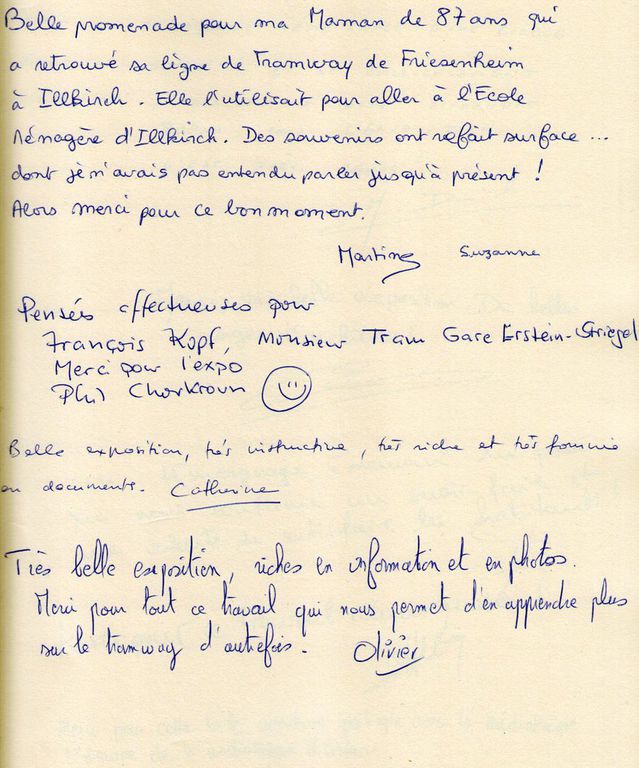 Belle promenade pour ma Maman de 87 ans qui
a retrouvé sa ligne de Tramway de Friesenheim
à Illkirch. Elle l'utilisait pour aller à l'Ecole
Ménagère d'Illkirch. Des souvenirs ont refait surface ...
dont je n'avais pas entendu parler jusqu'à présent !
Alors merci pour ce bon moment.
Martine Suzanne
Pensées affectueuses pour
François Kopf, Monsieur Tram Gare Erstein-Striegel
Merci pour l'expo
Phil Chorkroun
Belle exposition, très instructive, très riche et très fournie
en documents. Catherine
Très belle exposition, riches en information et en photos.
Merci pour tout ce travail qui nous permet d'en apprendre plus
sur le tramway d'autrefois. Olivier